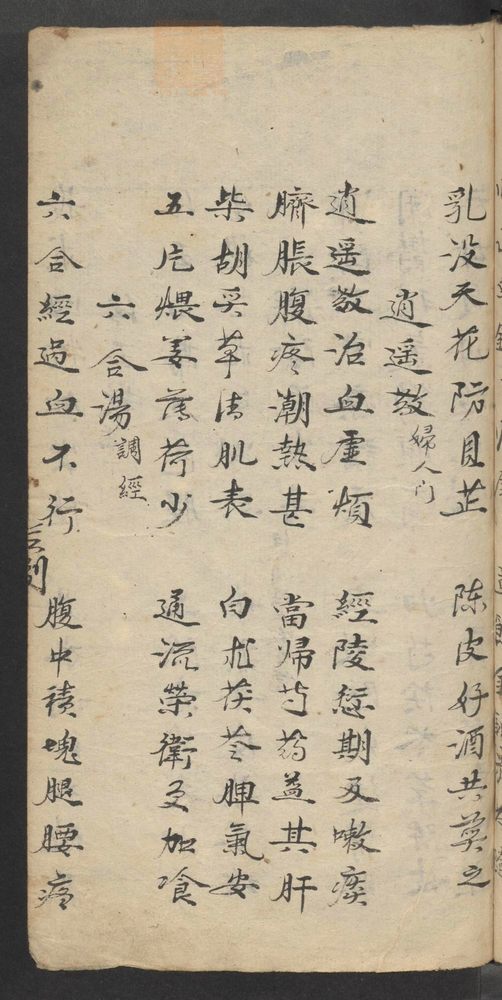 乳没天花防貝芷 陈皮好酒共煎之
逍遥散 婦人門
逍遥散治血虛煩 經陵愆期及嗽痰
臍脹腹疼潮熱甚 當帰芍药益其肝
柴胡炙草清肌表 白朮茯苓脾氣安
五片煨姜薄荷少 通流荣衛更加飡
六合湯 調經
六合經過血不行 腹中積塊腿腰疼